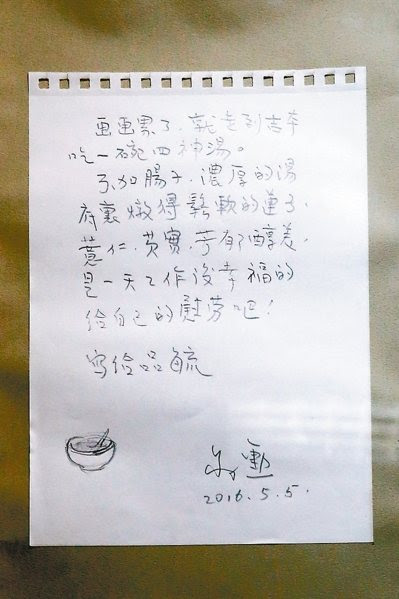 画画累了，就走到吉本
吃一碗四神湯。
不加腸子，濃厚的湯
底裏燉得鬆軟的蓮子、
薏仁、芡實，芳郁醇美，
是一天工作後幸福的
給自己的慰劳吧！
寫給品毓
2016.5.5.